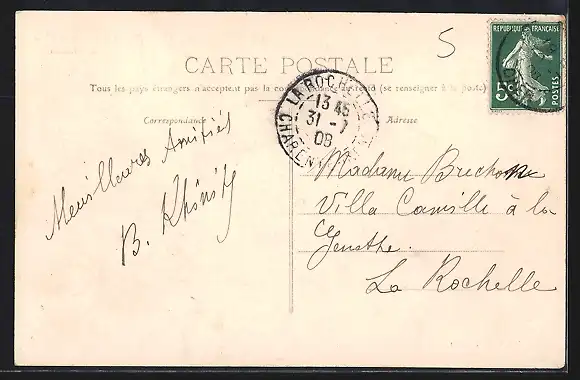 5
RÉPUBLIQUE FRANÇAISE
5c
POSTES
CARTE POSTALE
Tous les pays étrangers n'acceptent pas la correspondance au recto (se renseigner à la poste)
Correspondance
Adresse
LA ROCHELLE
13 45
31 - 7
08
Meilleures Amitiés
B.
Madame
Villa Camille à la
La Rochelle